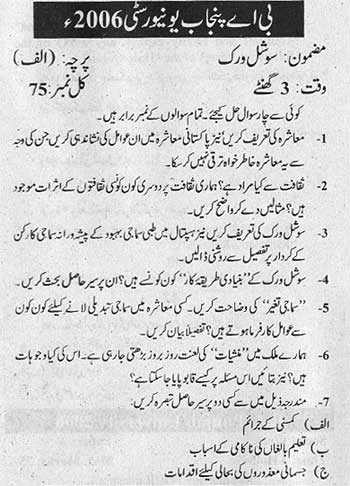 بی اے پنجاب یونیورسٹی 2006ء
مضمون: سوشل ورک پرچہ: (الف)
وقت: 3 گھنٹے کل نمبر: 75
کوئی سے چار سوال حل کیجئے۔ تمام سوالوں کے نمبر برابر ہیں۔
1- معاشرہ کی تعریف کریں نیز پاکستانی معاشرہ میں ان عوامل کی نشاندہی کریں جن کی وجہ
سے یہ معاشرہ خاطر خواہ ترقی نہیں کر سکا۔
2- ثقافت سے کیا مراد ہے؟ ہماری ثقافت پر دوسری کون کونسی ثقافتوں کے اثرات موجود
ہیں؟ مثالیں دے کر واضح کریں۔
3- سوشل ورک کی تعریف کریں نیز ہسپتال میں طبی سماجی بہبود کے پیشہ ورانہ سماجی کارکن
کے کردار پر تفصیل سے روشنی ڈالیں۔
4- سوشل ورک کے "بنیادی طریقہ کار" کون کونسے ہیں؟ ان پر سیر حاصل بحث کریں۔
5- "سماجی تغیر" کی وضاحت کریں۔ کسی معاشرہ میں سماجی تبدیلی لانے کیلئے کون کون
سے عوامل کار فرما ہوتے ہیں؟ تفصیلاً بیان کریں۔
6- ہمارے ملک میں "منشیات" کی لعنت روز بروز بڑھتی جا رہی ہے۔ اس کی کیا وجوہات
ہیں؟ نیز بتائیں اس مسئلہ پر کیسے قابو پایا جا سکتا ہے؟
7- مندرجہ ذیل میں سے کسی دو پر سیر حاصل تبصرہ کریں:
الف) کمسنی کے جرائم
ب) تعلیم بالغاں کی ناکامی کے اسباب
ج) جسمانی معذوروں کی بحالی کیلئے اقدامات